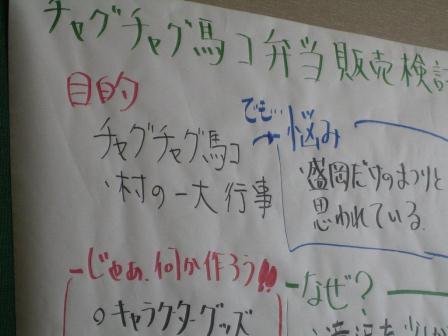 チャグチャグ馬コ弁当販売検討
目的
チャグチャグ馬コ
・村の一大行事
でも…
→悩み
盛岡だけのまつりと
思われている。
じゃあ、何か作ろう!!
◎キャラクターグッズ
なぜ?